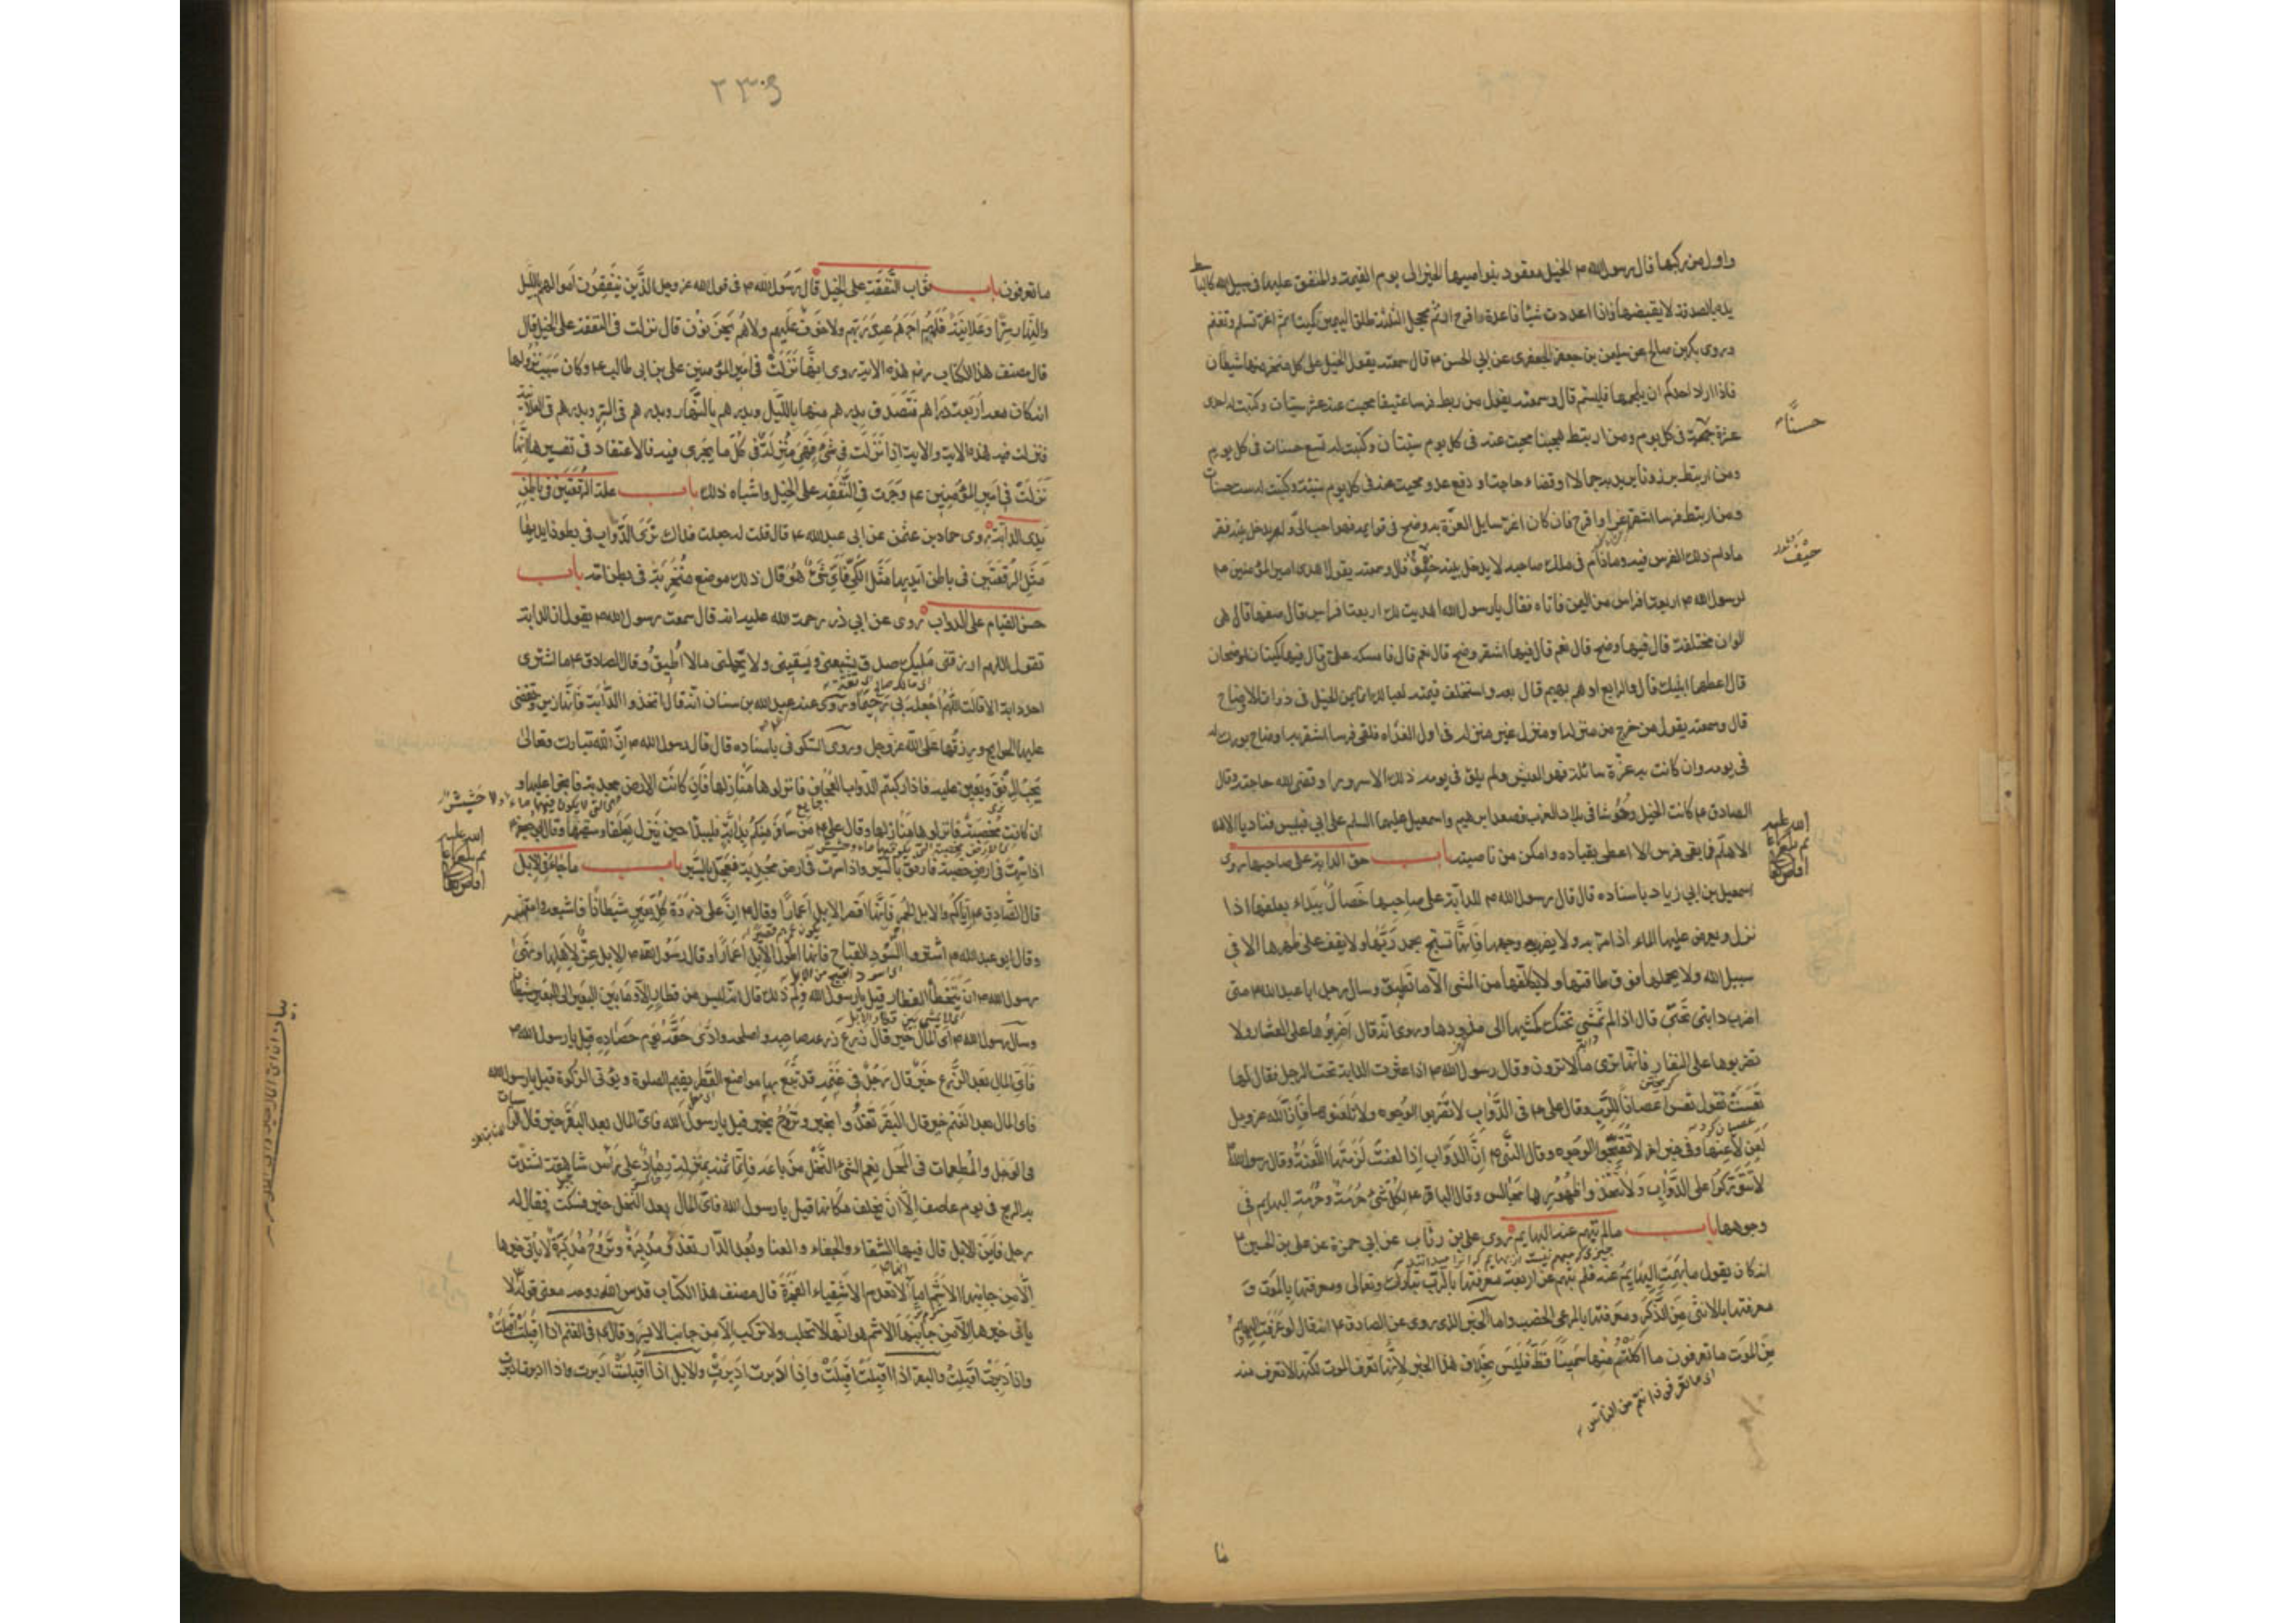 واول من ركبها قال رسول الله ص الخيل معقود بنواصيها الخير الى يوم القيمة والمنفق عليها فى سبيل الله كالباسط
يده بالصدقة لا يقبضها فاذا اعددت شيئا فاعده اقرح ارثم محجل الثلثة طلق اليمين كميتا ثم اغر تسلم وتغنم
وروى بكر بن صالح عن سليمن بن جعفر الجعفرى عن ابى الحسن ع قال سمعته يقول الخيل على كل منخر منها شيطان
فاذا اراد احدكم ان يلجمها فليسم قال وسمعته يقول من ربط فرسا عتيقا محيت عنه عشر سيئات وكتبت له احدى
عشرة حسنة فى كل يوم ومن ارتبط هجينا محيت عنه فى كل يوم سيئتان وكتبت له تسع حسنات فى كل يوم
ومن ارتبط برذونا يريد به جمالا او قضاء حاجة او دفع عدو محيت عنه فى كل يوم سيئة وكتبت له ست حسنات
ومن ارتبط فرسا اشقر اغر او اقرح فان كان اغر سايل الغرة به وضح فى قوايمه فهو احب الى ولم يدخل بيته فقر
مادام ذلك الفرس فيه ومادام فى ملك صاحبه لا يدخل بيته حيف قال وسمعته يقول اهدى امير المؤمنين ع
لرسول الله ص اربعة افراس من اليمن فاتاه فقال يا رسول الله اهديت لك اربعة افراس قال صفها قال هى
الوان مختلفة قال فيها وضح قال نعم قال فيها اشقر وضح قال نعم قال فامسكه على قال فيها كميتان اوضحان
قال اعطهما ابنيك قال والرابع ادهم بهيم قال بعه واستخلف قيمته لعيالك انما يمن الخيل فى ذوات الاوضاح
قال وسمعته يقول من خرج من منزله او منزل غير منزله فى اول الغداه فلقى فرسا اشقر به اوضاح بورك له
فى يومه وان كانت به غرة سائلة فهو العيش ولم يلق فى يومه ذلك الا سرورا وقضى الله حاجته وقال
الصادق ع كانت الخيل وحوشا فى بلاد العرب فصعد ابرهيم واسمعيل عليهما السلم على ابى قبيس فناديا الا هلا
الا هلم فما بقى فرس الا اعطى بقياده وامكن من ناصيته باب حق الدابة على صاحبها روى
اسمعيل بن ابى زياد باسناده قال قال رسول الله ص للدابة على صاحبها خصال يبداء بعلفها اذا
نزل ويعرض عليها الماء اذا مر به ولا يضرب وجهها فانها تسبح بحمد ربها ولا يقف على ظهرها الا فى
سبيل الله ولا يحملها فوق طاقتها ولا يكلفها من المشى الا ما تطيق وسال رجل ابا عبد الله ع متى
اضرب دابتى تحتى قال اذا لم تمش تحتك كمشيها الى مذودها وروى انه قال اضربوها على العثار ولا
تضربوها على النفار فانها ترى ما لا ترون وقال رسول الله ص اذا عثرت الدابة تحت الرجل فقال لها
تعست تقول تعس اعصانا للرب وقال على ع فى الدواب لا تضربوا الوجوه ولا تلعنوها فان الله عز وجل
لعن لاعنها وفى خبر اخر لا تقبحوا الوجوه وقال النبى ص ان الدواب اذا لعنت لزمتها اللعنة وقال رسول الله
لا تتوركوا على الدواب ولا تتخذوا ظهورها مجالس وقال الباقر ع لكل شىء حرمة وحرمة البهايم فى
وجوهها باب ما لم تبهم عنه البهايم روى على بن رئاب عن ابى حمزة عن على بن الحسين ع
انه كان يقول ما بهمت البهايم عنه فلم تبهم عن اربعة معرفتها بالرب تبارك وتعالى ومعرفتها بالموت و
معرفتها بالانثى من الذكر ومعرفتها بالمرعى الخصب واما الخبر الذى روى عن الصادق ع انه قال لو عرفت البهايم
من الموت ما تعرفون ما اكلتم منها سمينا قط فليس بخلاف هذا الخبر لانها تعرف الموت لكنها لا تعرف منه
حسنات
حيف
٢٣٠٩
ما تعرفون باب ثواب النفقة على الخيل قال رسول الله ص فى قول الله عز وجل الذين ينفقون اموالهم بالليل
والنهار سرا وعلانية فلهم اجرهم عند ربهم ولا خوف عليهم ولا هم يحزنون قال نزلت فى النفقة على الخيل قال
قال مصنف هذا الكتاب ره هذه الاية روى انها نزلت فى امير المؤمنين على بن ابى طالب ع وكان سبب نزولها
انه كان معه اربعة دراهم فتصدق بدرهم منها بالليل وبدرهم بالنهار وبدرهم فى السر وبدرهم فى العلانية
فنزلت فيه هذه الاية والاية اذا نزلت فى شىء فهى منزلة فى كل ما يجرى فيه فالاعتقاد فى تفسيرها انها
نزلت فى امير المؤمنين ع وجرت فى النفقة على الخيل واشباه ذلك باب علة الرقعتين فى باطن
يدى الدابة روى حماد بن عثمن عن ابى عبد الله ع قال قلت له جعلت فداك نرى الدواب فى بطون ايديها
مثل الرقعتين فى باطن ايديها مثل الكى فاى شىء هو قال ذلك موضع منخريه فى بطن امه باب
حسن القيام على الدواب روى عن ابى ذر رحمت الله عليه انه قال سمعت رسول الله ص يقول ان الدابة
تقول اللهم ارزقنى مليك صدق يشبعنى ويسقينى ولا يحملنى مالا اطيق وقال الصادق ع ما اشترى
احد دابة الا قالت اللهم اجعله بى رحيما وروى عنه عبد الله بن سنان انه قال اتخذوا الدابة فانها زين وتقضى
عليها الحوايج ورزقها على الله عز وجل وروى السكونى باسناده قال قال رسول الله ص ان الله تبارك وتعالى
يحب الرفق ويعين عليه فاذا ركبتم الدواب العجاف فانزلوها منازلها فان كانت الارض مجدبة فانجوا عليها و
ان كانت مخصبة فانزلوها منازلها وقال على ع من سافر منكم بدابة فليبدا حين ينزل بعلفها وسقيها وقال ابو جعفر ع
اذا سرت فى ارض خصبة فارفق بالسير واذا سرت فى ارض مجدبة فعجل بالسير باب ما جاء فى الابل
قال الصادق ع اياكم والابل الحمر فانها اقصر الابل اعمارا وقال ص ان على ذروة كل بعير شيطانا فاشبعه وامتهنه
وقال ابو عبد الله ع اشتروا السود القباح فانها اطول الابل اعمارا وقال رسول الله ص الابل عز لاهلها ونهى
رسول الله ص ان يتخطا القطار قيل يا رسول الله ولم ذلك قال انه ليس من قطار الا وما بين البعير الى البعير شيطان
وسال رسول الله ص اى المال خير قال زرع زرعه صاحبه واصلحه وادى حقه يوم حصاده قيل يا رسول الله ص
فاى المال بعد الزرع خير قال رجل فى غنمه قد تبع بها مواضع القطر يقيم الصلوة ويؤتى الزكوة قيل يا رسول الله
فاى المال بعد الغنم خير قال البقر تغدوا بخير وتروح بخير قيل يا رسول الله فاى المال بعد البقر خير قال الراسيات
فى الوحل والمطعمات فى المحل نعم الشىء النخل من باعه فانما ثمنه بمنزلة رماد على راس شاهقة اشتدت
به الريح فى يوم عاصف الا ان يخلف مكانها قيل يا رسول الله فاى المال بعد النخل خير فسكت فقال له
رجل فاين الابل قال فيها الشقاء والجفاء والعنا وبعد الدار تغدو مدبرة وتروح مدبرة لا ياتى خيرها
الا من جانبها الاشئم اما انها لا تعدم الاشقياء الفجرة قال مصنف هذا الكتاب قدس الله روحه معنى قوله لا
ياتى خيرها الا من جانبها الاشئم هو انها لا تحلب ولا تركب الا من جانب الايسر وقال ع فى الغنم اذا اقبلت اقبلت
واذا ادبرت اقبلت والبقر اذا اقبلت اقبلت واذا ادبرت ادبرت والابل اذا اقبلت ادبرت واذا ادبرت ادبرت